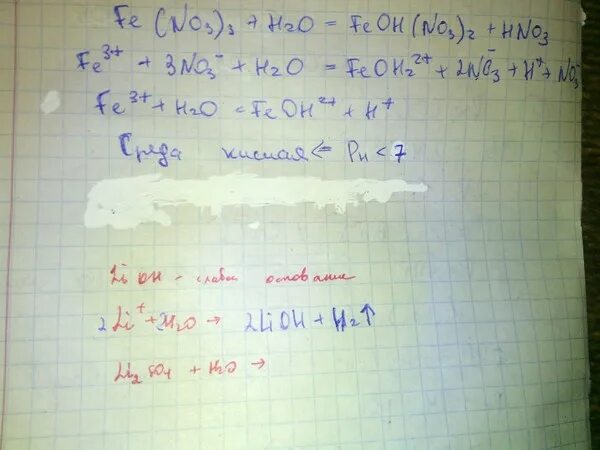 Fe(NO₃)₃ + H₂O = FeOH(NO₃)₂ + HNO₃
Fe³⁺ + 3NO₃⁻ + H₂O = FeOH₂²⁺ + 2NO₃⁻ + H⁺ + NO₃⁻
Fe³⁺ + H₂O = FeOH²⁺ + H⁺
Среда кислая <= PH < 7
LiOH - слабое основание
2Li⁺ + 2H₂O → 2LiOH + H₂↑
Li₂SO₄ + H₂O →